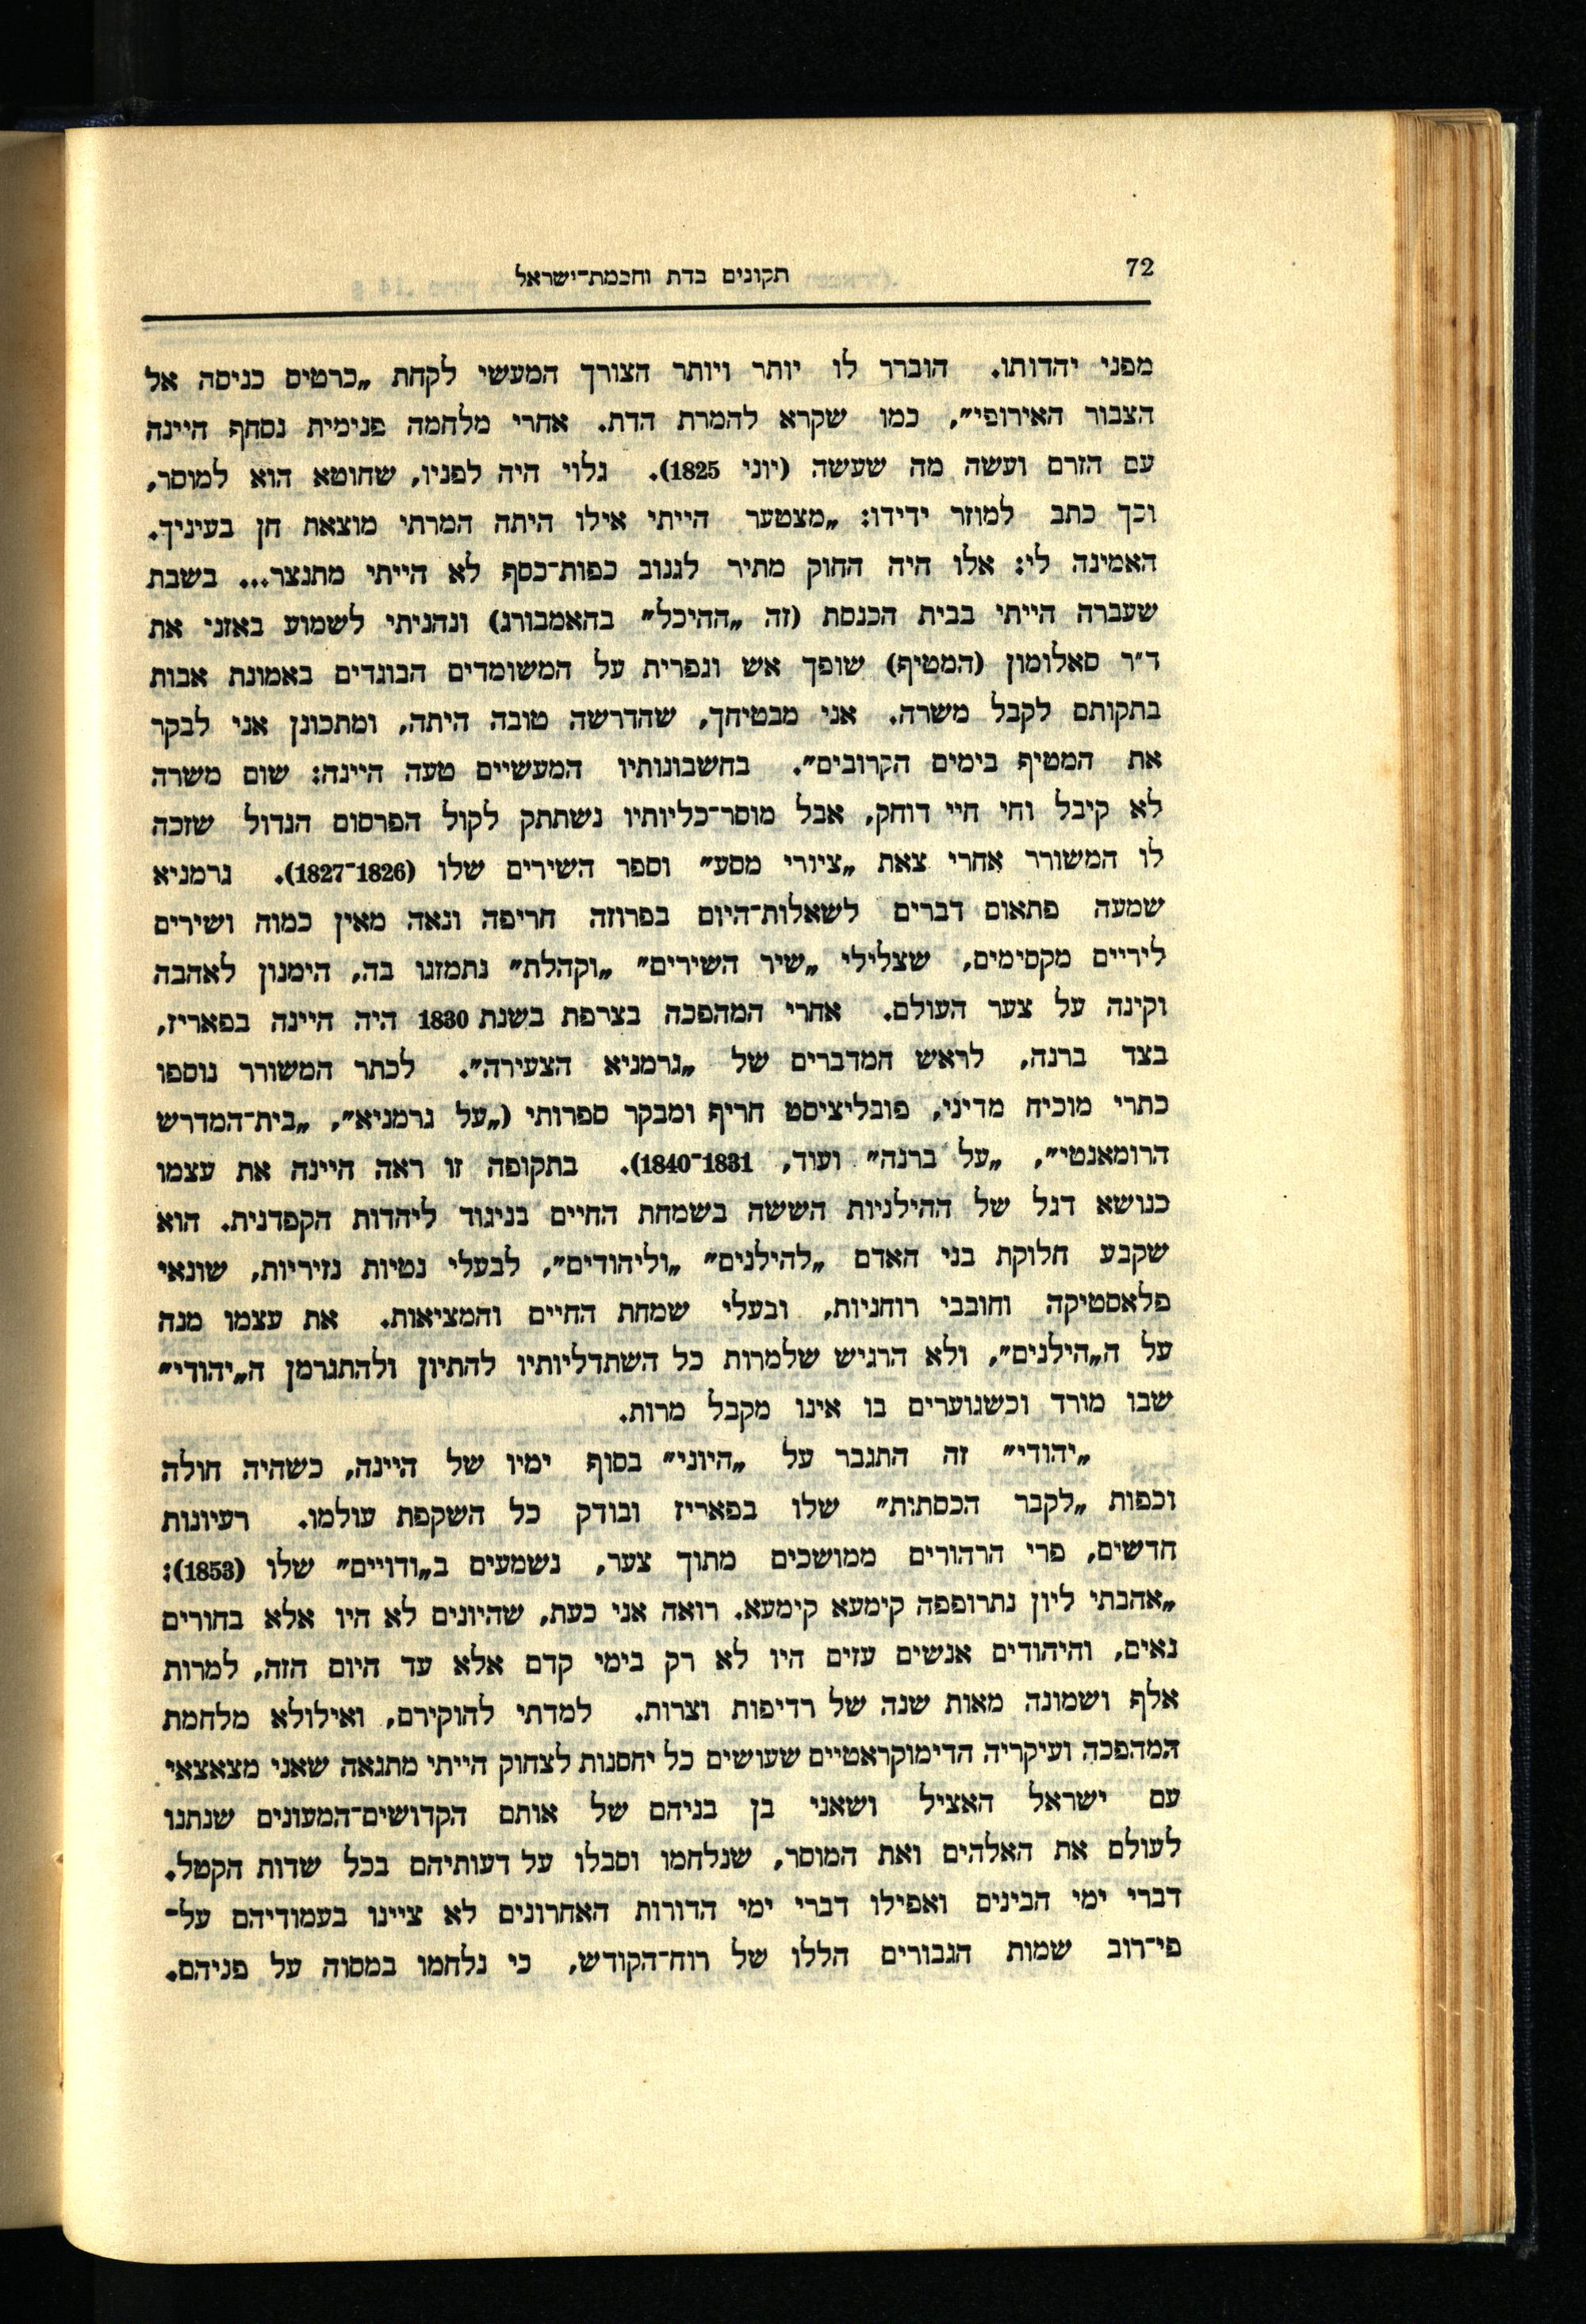 72
תקונים בדת וחכמת־ישראל
מפני יהדותו. הוברר לו יותר ויותר הצורך המעשי לקחת „כרטיס כניסה אל
הצבור האירופי”, כמו שקרא להמרת הדת. אחרי מלחמה פנימית נסחף היינה
עם הזרם ועשה מה שעשה (יוני 1825). גלוי היה לפניו, שחוטא הוא למוסר,
וכך כתב למוזר ידידו: „מצטער הייתי אילו היתה המרתי מוצאת חן בעיניך.
האמינה לי: אלו היה החוק מתיר לגנוב כפות־כסף לא הייתי מתנצר... בשבת
שעברה הייתי בבית הכנסת (זה „ההיכל” בהאמבורג) ונהניתי לשמוע באזני את
ד״ר סאלומון (המטיף) שופך אש וגפרית על המשומדים הבוגדים באמונת אבות
בתקותם לקבל משרה. אני מבטיחך, שהדרשה טובה היתה, ומתכונן אני לבקר
את המטיף בימים הקרובים”. בחשבונותיו המעשיים טעה היינה: שום משרה
לא קיבל וחי חיי דוחק, אבל מוסר־כליותיו נשתתק לקול הפרסום הגדול שזכה
לו המשורר אחרי צאת „ציורי מסע” וספר השירים שלו (1826־1827). גרמניא
שמעה פתאום דברים לשאלות־היום בפרוזה חריפה ונאה מאין כמוה ושירים
ליריים מקסימים, שצלילי „שיר השירים” „וקהלת” נתמזגו בה, הימנון לאהבה
וקינה על צער העולם. אחרי המהפכה בצרפת בשנת 1830 היה היינה בפאריז,
בצד ברנה, לראש המדברים של „גרמניא הצעירה”. לכתר המשורר נוספו
כתרי מוכיח מדיני, פובליציסט חריף ומבקר ספרותי („על גרמניא”, „בית־המדרש
הרומאנטי”, „על ברנה” ועוד, 1831־1840). בתקופה זו ראה היינה את עצמו
כנושא דגל של ההילניות הששה בשמחת החיים בניגוד ליהדות הקפדנית. הוא
שקבע חלוקת בני האדם „להילנים” „וליהודים”, לבעלי נטיות נזיריות, שונאי
פלאסטיקה וחובבי רוחניות, ובעלי שמחת החיים והמציאות. את עצמו מנה
על ה„הילנים”, ולא הרגיש שלמרות כל השתדליותיו להתיון ולהתגרמן ה„יהודי”
שבו מורד וכשגוערים בו אינו מקבל מרות.
„יהודי” זה התגבר על „היוני” בסוף ימיו של היינה, כשהיה חולה
וכפות „לקבר הכסתות” שלו בפאריז ובודק כל השקפת עולמו. רעיונות
חדשים, פרי הרהורים ממושכים מתוך צער, נשמעים ב„ודויים” שלו (1853):
„אהבתי ליון נתרופפה קימעא קימעא. רואה אני כעת, שהיונים לא היו אלא בחורים
נאים, והיהודים אנשים עזים היו לא רק בימי קדם אלא עד היום הזה, למרות
אלף ושמונה מאות שנה של רדיפות וצרות. למדתי להוקירם, ואילולא מלחמת
המהפכה ועיקריה הדימוקראטיים שעושים כל יחסנות לצחוק הייתי מתגאה שאני מצאצאי
עם ישראל האציל ושאני בן בניהם של אותם הקדושים־המעונים שנתנו
לעולם את האלהים ואת המוסר, שנלחמו וסבלו על דעותיהם בכל שדות הקטל.
דברי ימי הבינים ואפילו דברי ימי הדורות האחרונים לא ציינו בעמודיהם על־
פי־רוב שמות הגבורים הללו של רוח־הקודש, כי נלחמו במסוה על פניהם.